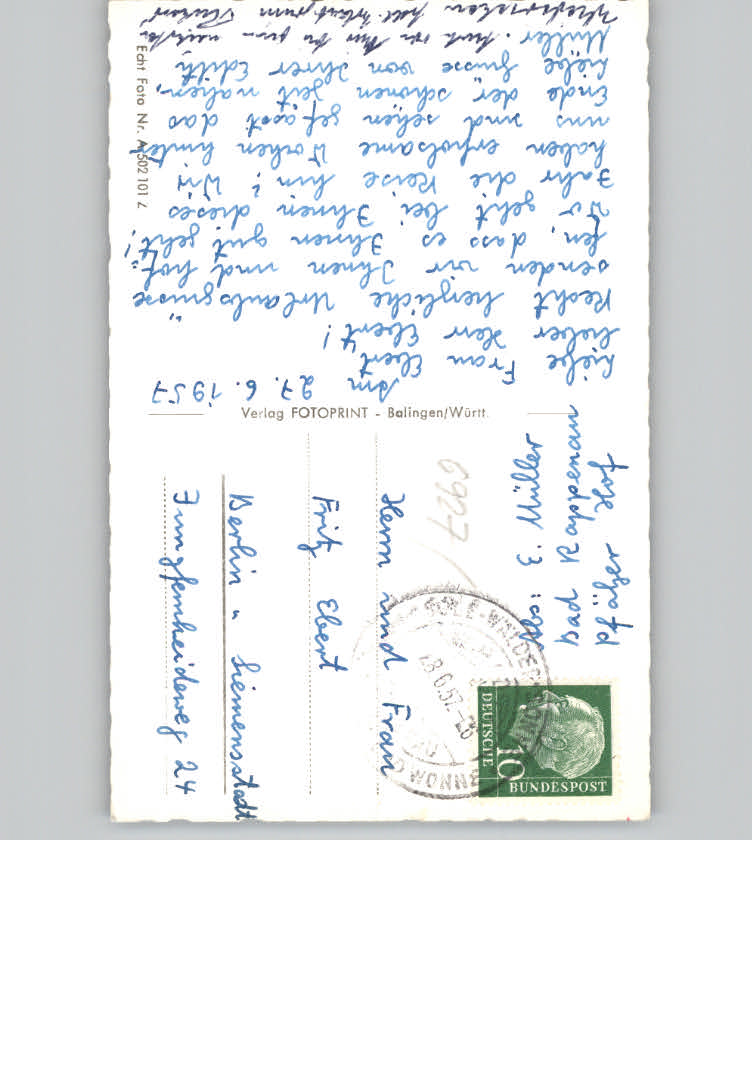 Am 27. 6. 1957
Liebe Frau Ebert
lieber Herr Ebert!
Recht herzliche Urlaubsgrüsse
senden wir Ihnen und hof-
fen, dass es Ihnen gut geht!
Wo geht bei Ihnen dieses
Jahr die Reise hin? Wir
haben erholsame Wochen hinter
uns und sehen gefasst das
Ende der "schönen" Zeit nahen.
Liebe Grüsse von Ihrer Edith
Müller. Auch von
Echt Foto Nr. A 502 101 Z
Verlag FOTOPRINT - Balingen/Württ.
Abs: E. Müller
Bad Rappenau
Pfälzer Hof
6927
Herrn und Frau
Fritz Ebert
Berlin - Siemensstadt
Jungfernheideweg 24
SOLE-
28.6.57
DEUTSCHE
BUNDESPOST
10